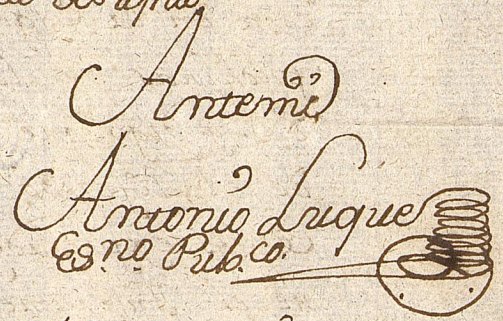 Antemi
Antonio Luque
Es.no. Pub.co.